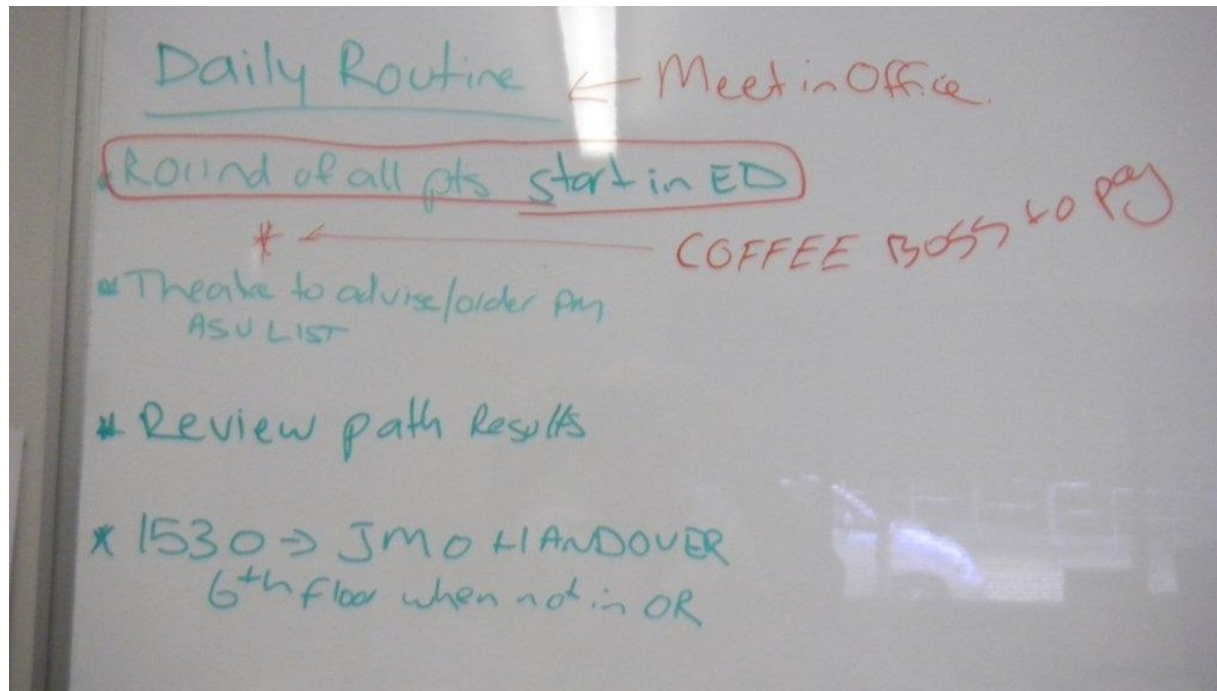 Daily Routine ← Meet in Office.
Round of all pts start in ED
* ← COFFEE BOSS to pay
* Theatre to advise/order
ASU LIST
* Review path Results
* 1530 → JMO HANDOVER
6th floor when not in OR